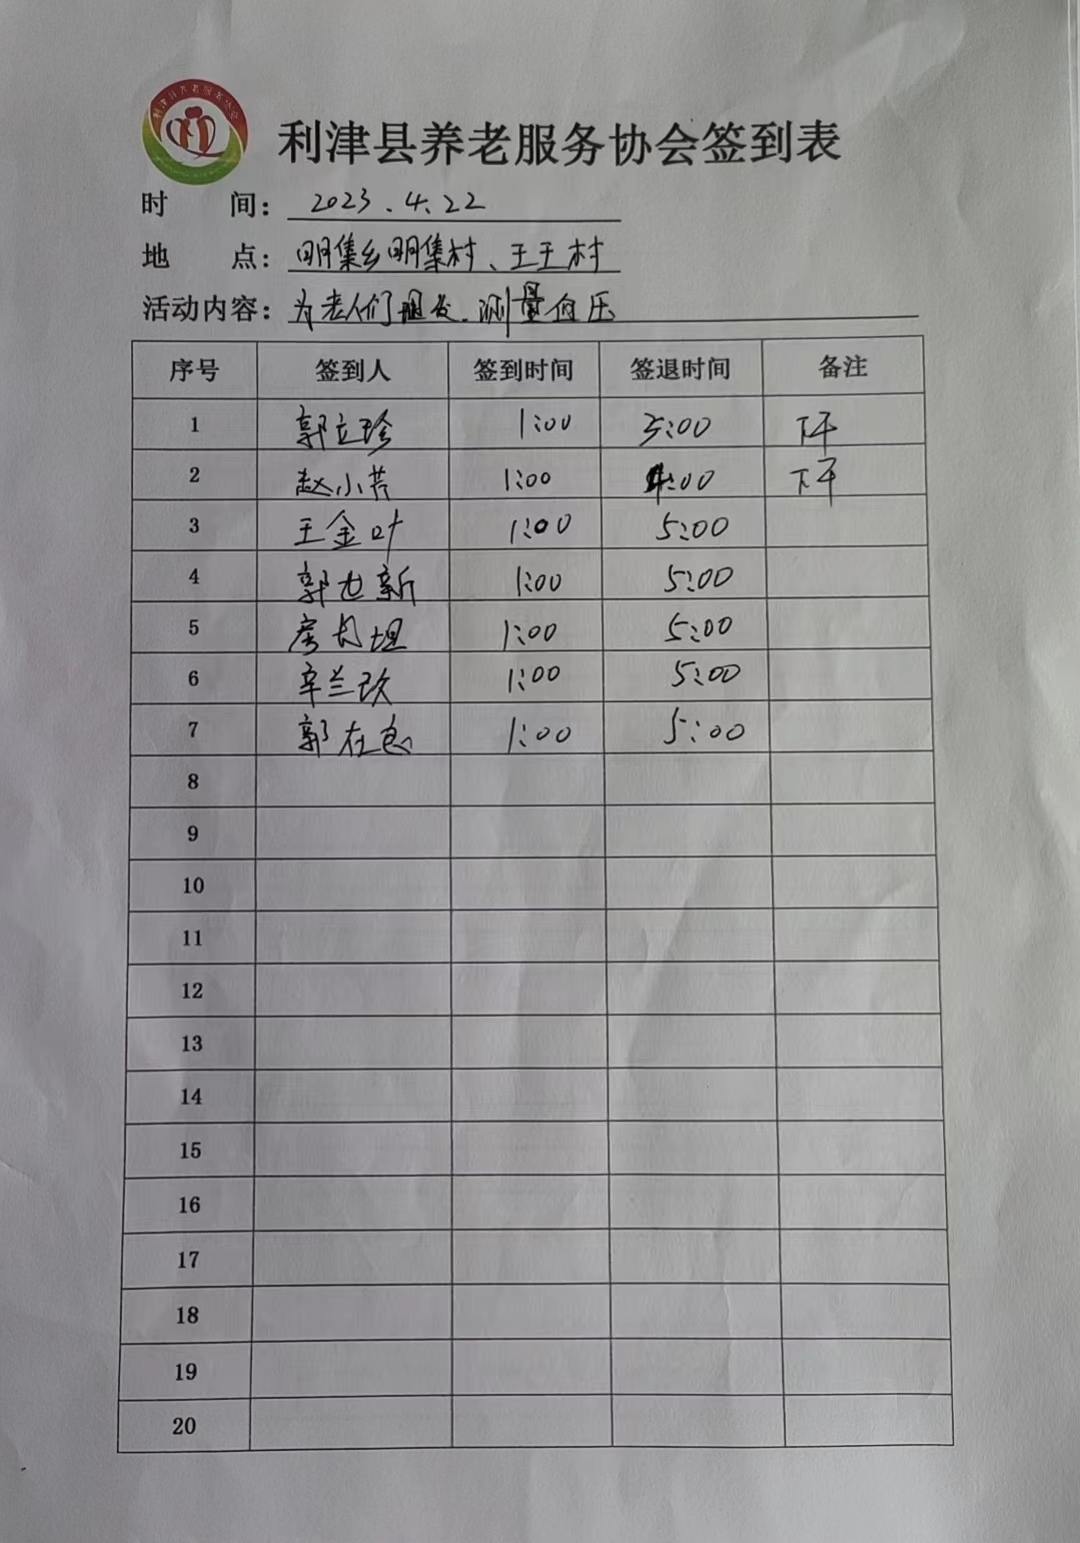 利津县养老服务协会
利津县养老服务协会签到表
时 间： 2023.4.22
地 点： 明集乡明集村、王王村
活动内容： 为老人们理发.测量血压
序号 签到人 签到时间 签退时间 备注
1 郭立珍 1:00 5:00 下午
2 赵小芳 1:00 4:00 下午
3 王金叶 1:00 5:00
4 郭世新 1:00 5:00
5 1:00 5:00
6 辛兰玖 1:00 5:00
7 郭在 1:00 5:00
8
9
10
11
12
13
14
15
16
17
18
19
20